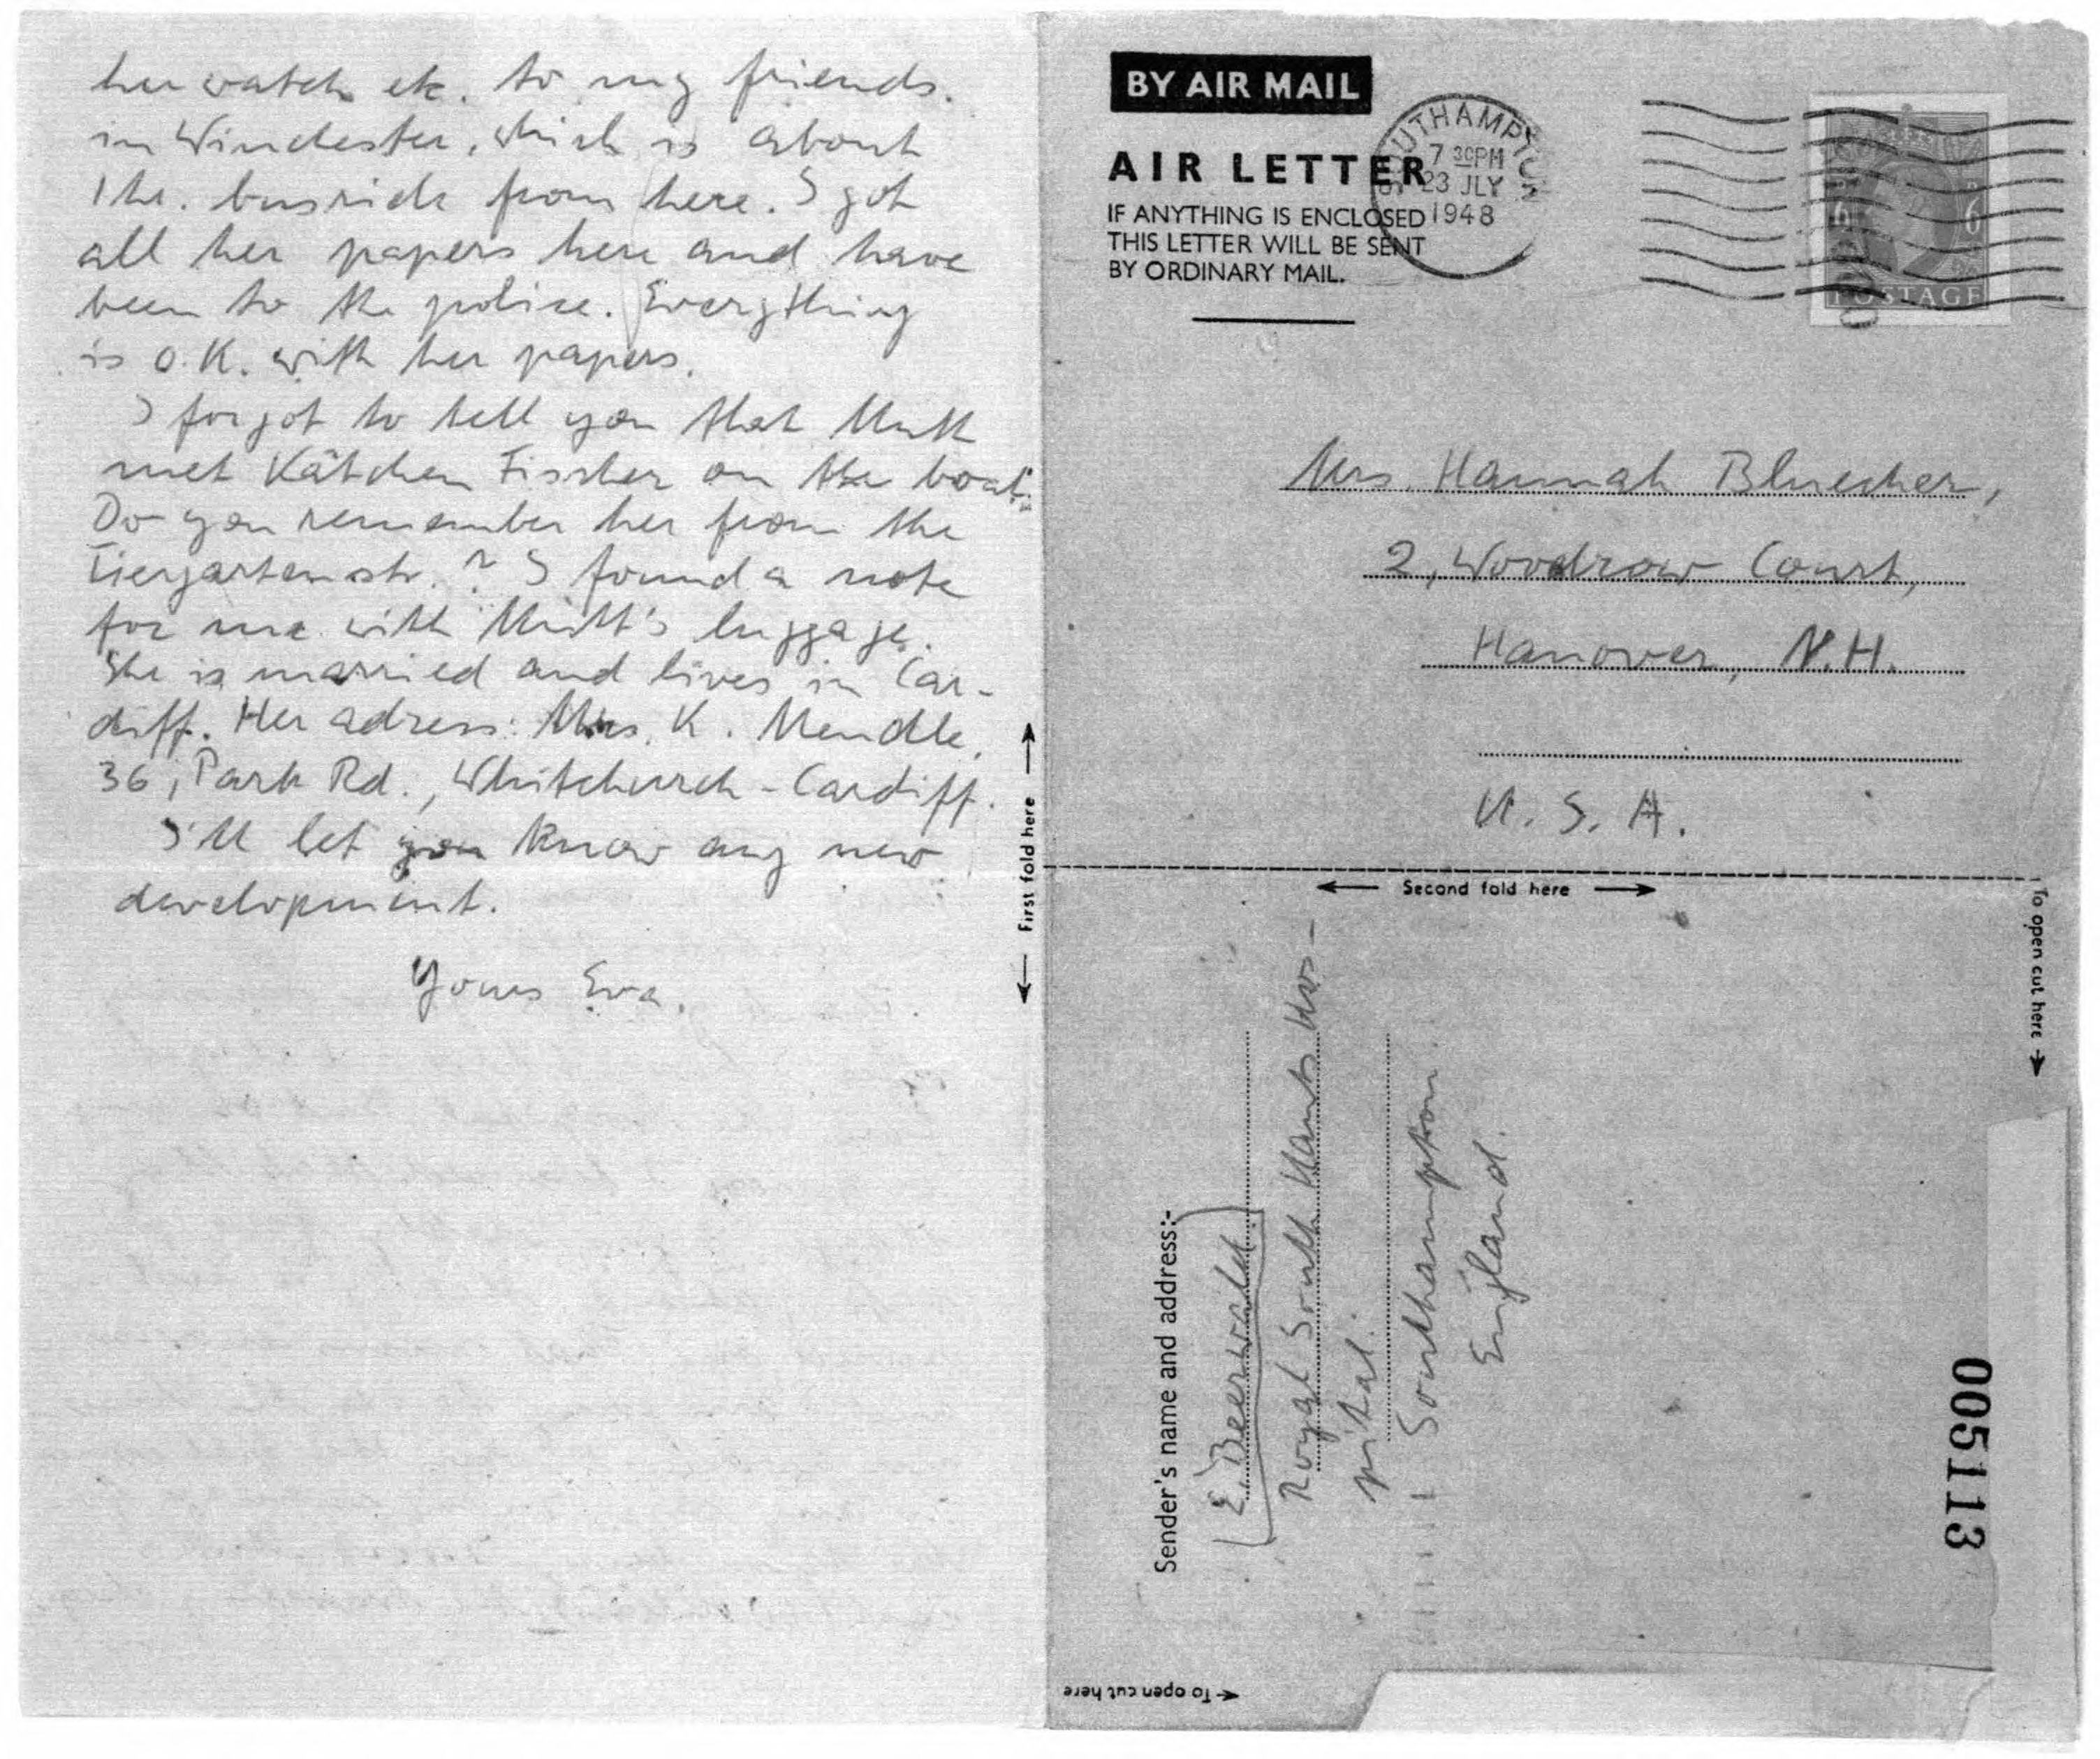 her watch etc. to my friends.
in Winchester, which is about
1 hr. busride from here. I got
all her papers here and have
been to the police. Everything
is O.K. with her papers.
I forgot to tell you that Mutt
met Kätchen Fischer on the boat.
Do you remember her from the
Tiergartenstr.? I found a note
for me with Mutt's luggage.
She is married and lives in Car-
diff. Her adress: Mrs. K. Mendle,
36, Park Rd., Whitchurch - Cardiff.
I'll let you know any new
development.
Yours Eva.
First fold here
BY AIR MAIL
AIR LETTER
IF ANYTHING IS ENCLOSED
THIS LETTER WILL BE SENT
BY ORDINARY MAIL.
SOUTHAMPTON
7 30PM
23 JLY
1948
6
6
POSTAGE
Mrs. Hannah Bluecher,
2, Woodrow Court,
Hanover, N.H.
U.S.A.
Second fold here
To open cut here
Sender's name and address:-
E. Beerwald
Royal South Hants Hos-
pital.
Southampton
England.
005113
To open cut here